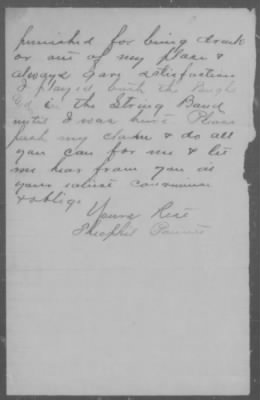 punished for being drunk
or out of my place &
always gave satisfaction
I played with the
in the String Band
until I was hurt Please
push my claim & do all
you can for me & let
me hear from you at
your earliest convenience
& oblige
Yours Rest
Theophil